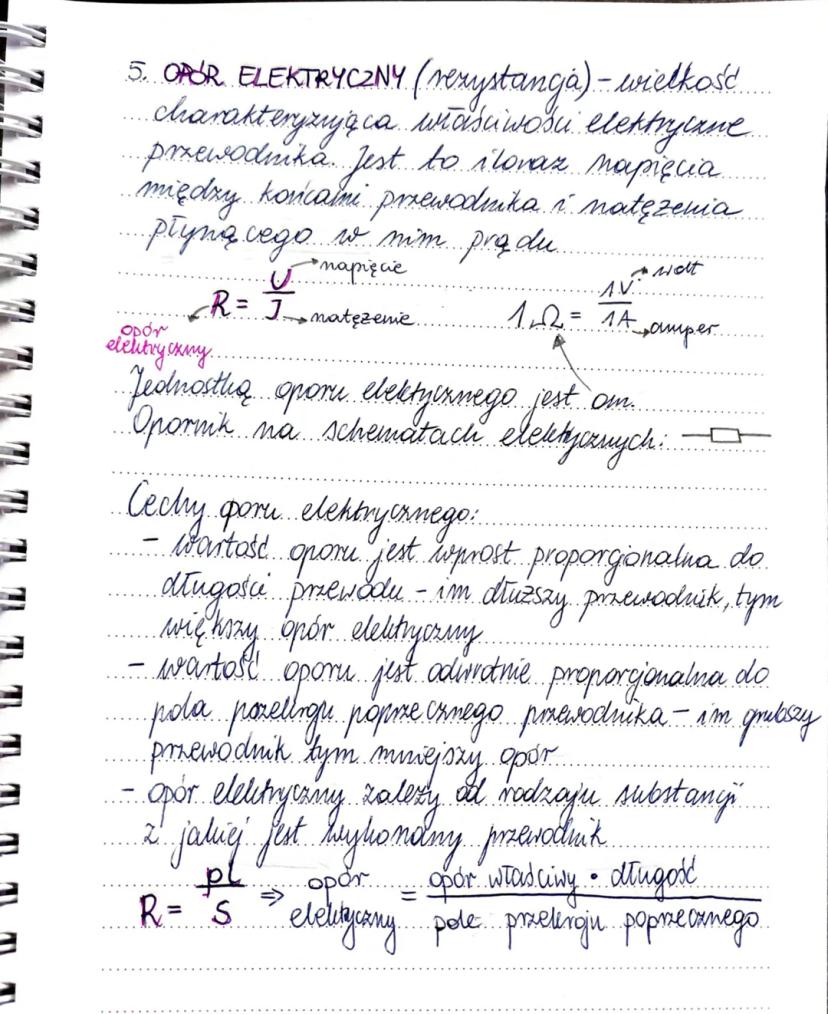 5. OPÓR ELEKTRYCZNY (rezystancja) - wielkość
charakteryzująca właściwości elektryczne
przewodnika. Jest to iloraz napięcia
między końcami przewodnika i natężenia
płynącego w nim prądu
R = U/I → napięcie → natężenie
opór elektryczny
1 Ω = 1V/1A → wolt → amper
Jednostką oporu elektycznego jest om.
Opornik na schematach elektycznych:
Cechy oporu elektrycznego:
- wartość oporu jest wprost proporcjonalna do
długości przewodu - im dłuższy przewodnik, tym
większy opór elektryczny
- wartość oporu jest odwrotnie proporcjonalna do
pola przekroju poprzecznego przewodnika - im grubszy
przewodnik tym mniejszy opór
- opór elektryczny zależy od rodzaju substancji
z jakiej jest wykonany przewodnik
R = ρL/S ⇒ opór elektyczny = opór właściwy • długość / pole przekroju poprzecznego